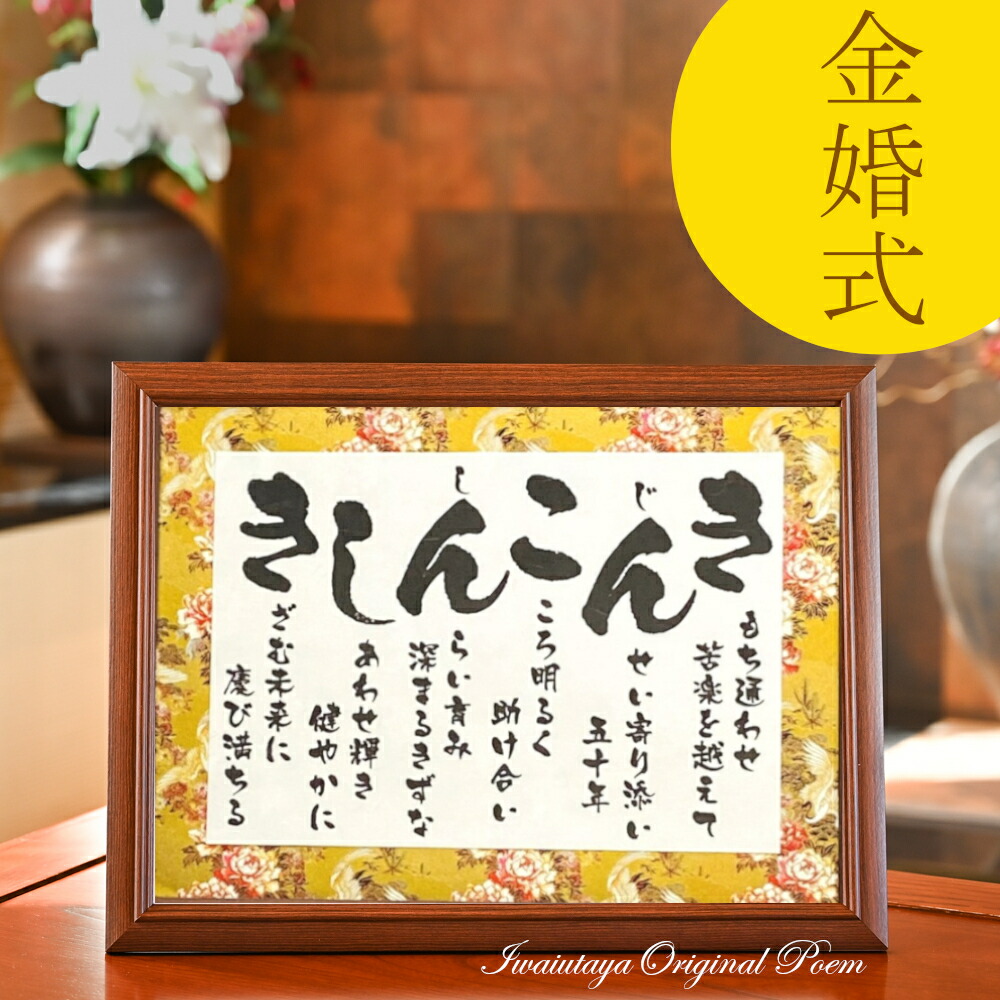 金婚式
きもち通わせ
苦楽を越えて
じんせい寄り添い
五十年
こころ明るく
助け合い
しんらい育み
深まるきずな
しあわせ輝き
健やかに
きざむ未来に
慶び満ちる
Iwaiutaya Original Poem